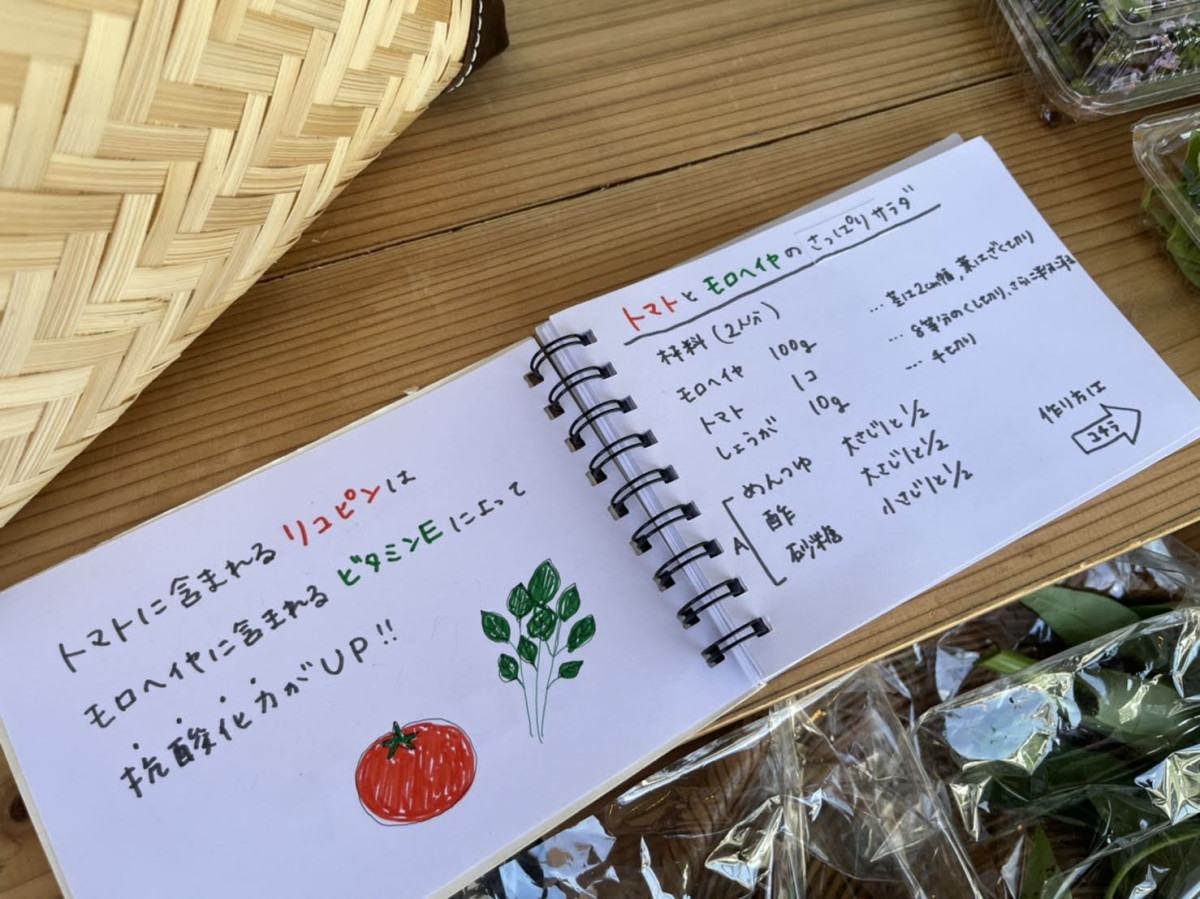 トマトに含まれる リコピンは
モロヘイヤに含まれる ビタミンEによって
抗酸化力がUP!!
トマトとモロヘイヤのさっぱりサラダ
材料(2人分)
モロヘイヤ 100g …茎は2cm幅,葉はざく切り
トマト 1コ …8等分のくし切り、さらに
しょうが 10g …千切り
A
めんつゆ 大さじ1と1/2
酢 大さじ1と1/2
砂糖 小さじ1と1/2
作り方は
コチラ